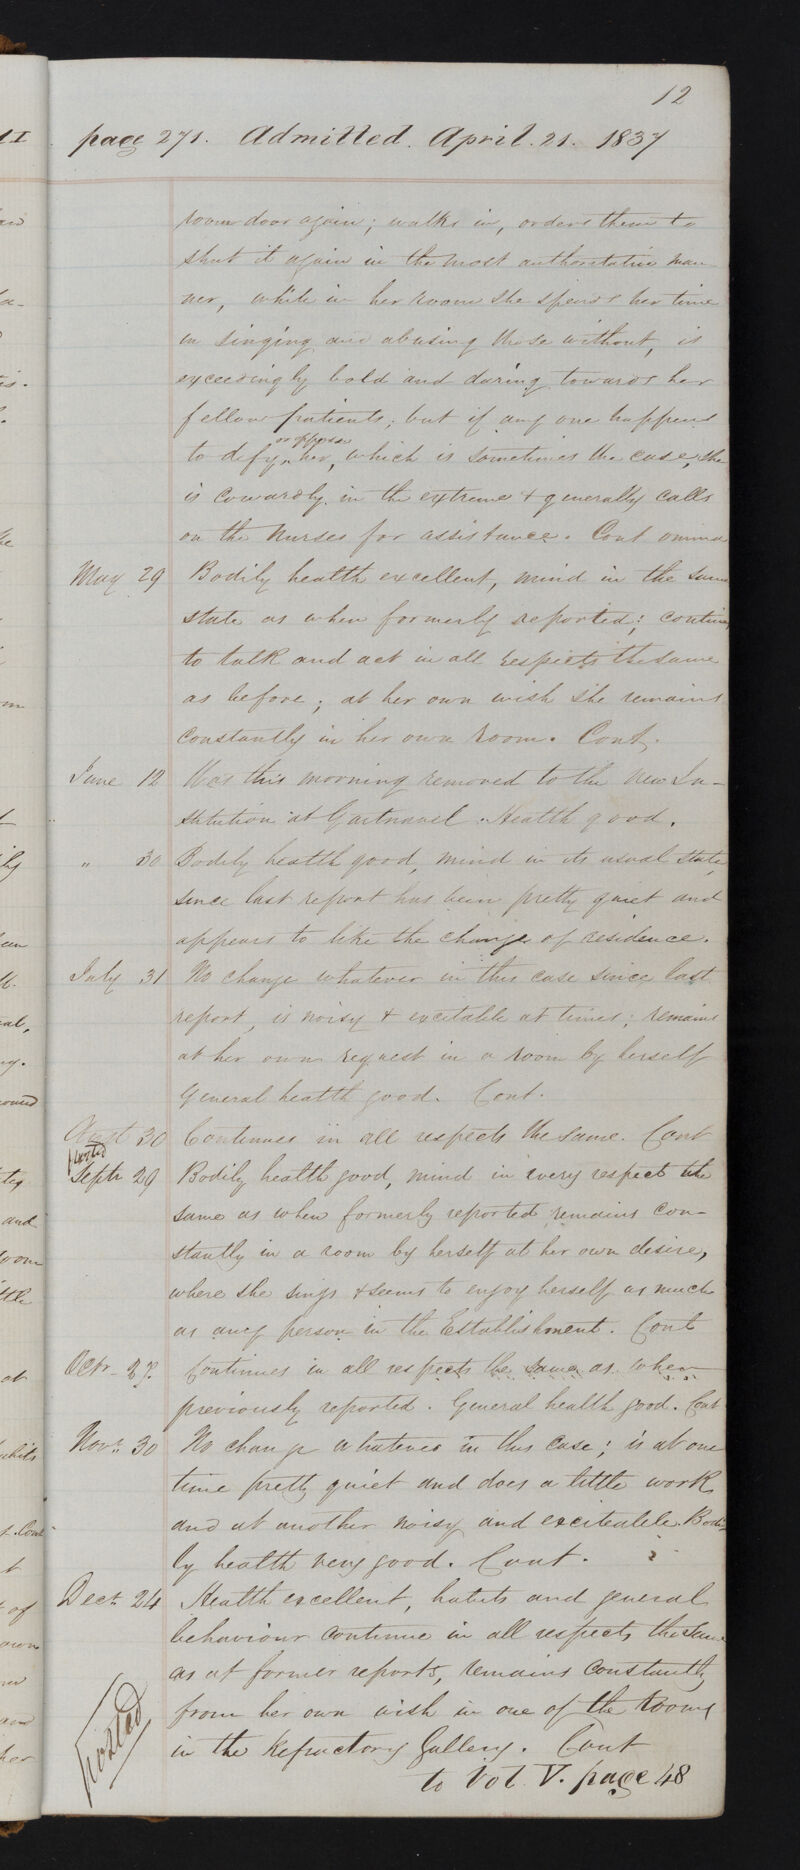 12
page 271. Admitted. April. 21. 1837
room door again; walks in, orders them to
shut it again in the most authoritative man
ner, while in her room she spends her time
in singing and abusing those without, is
exceedingly bold and daring towards her
fellow patients; but if any one happens
to defy or oppose her, which is sometimes the case, she
is cowardly in the extreme & generally calls
on the nurses for assistance. Cont omnia
May 29 Bodily health excellent, mind in the same
state as when formerly reported; continues
to talk and act in all respects the same
as before; at her own wish she remains
constantly in her own room. Cont.
June 12 Was this morning removed to the new In-
stitution at Gartnavel. Health good.
" 30 Bodily health good, mind in its usual state,
since last report has been pretty quiet and
appears to like the change of residence.
July 31 No change whatever in this case since last
report, is noisy & excitable at times; remains
at her own request in a room by herself
General health good. Cont.
Augt 30 Continues in all respects the same. Cont
posted
Septr 29 Bodily health good, mind in every respect the
same as when formerly reported remains con-
stantly in a room by herself at her own desire,
where she sings & seems to enjoy herself as much
as any person in the Establishment. Cont
Octr 27. Continues in all respects the same as when
previously reported. General health good. Cont
Novr. 30 No change whatever in this case; is at one
time pretty quiet and does a little work
and at another noisy and exciteable. Bodi
ly health very good. Cont.
Decr. 24 Health excellent, habits and general
behaviour continue in all respects the same
as at former reports, remains constantly
from her own wish in one of the rooms
in the Refractory Gallery. Cont
posted
to Vol. V. page 48